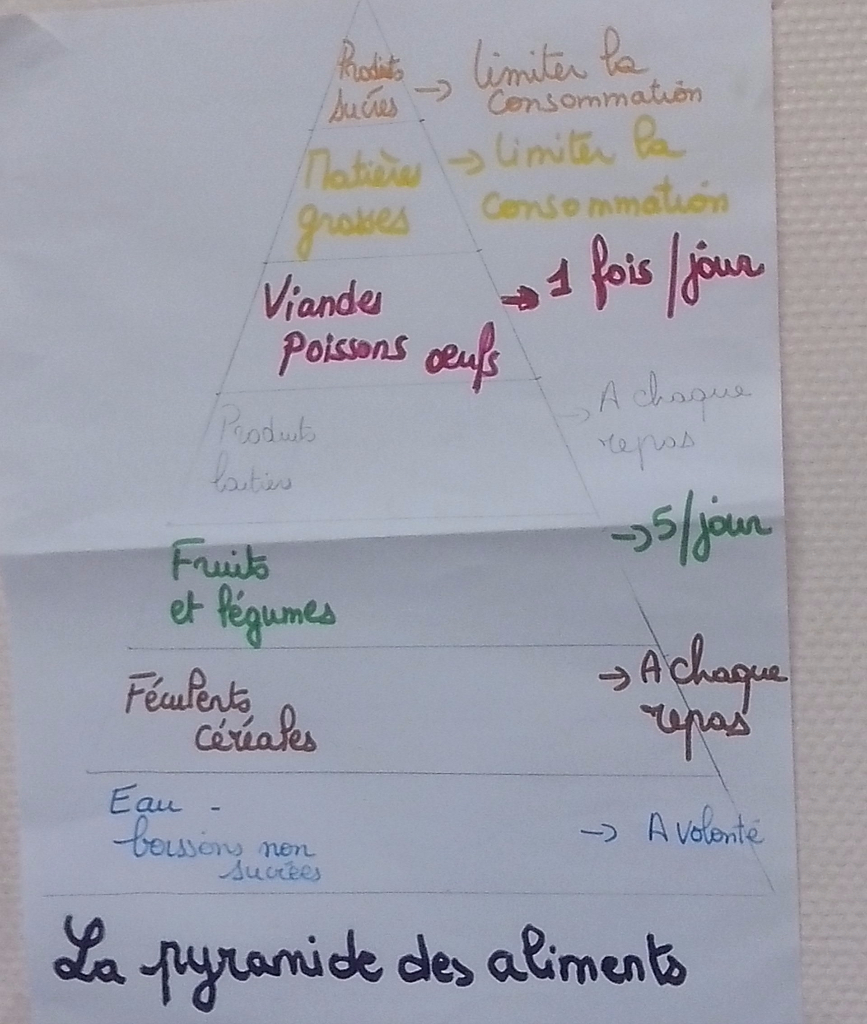 Produits
sucrés → limiter la
consommation
Matières → limiter la
grasses consommation
Viandes → 1 fois/jour
Poissons œufs
Produits → A chaque
laitiers repas
→ 5/jour
Fruits
et légumes
Féculents → A chaque
céréales repas
Eau -
boissons non → A volonté
sucrées
La pyramide des aliments